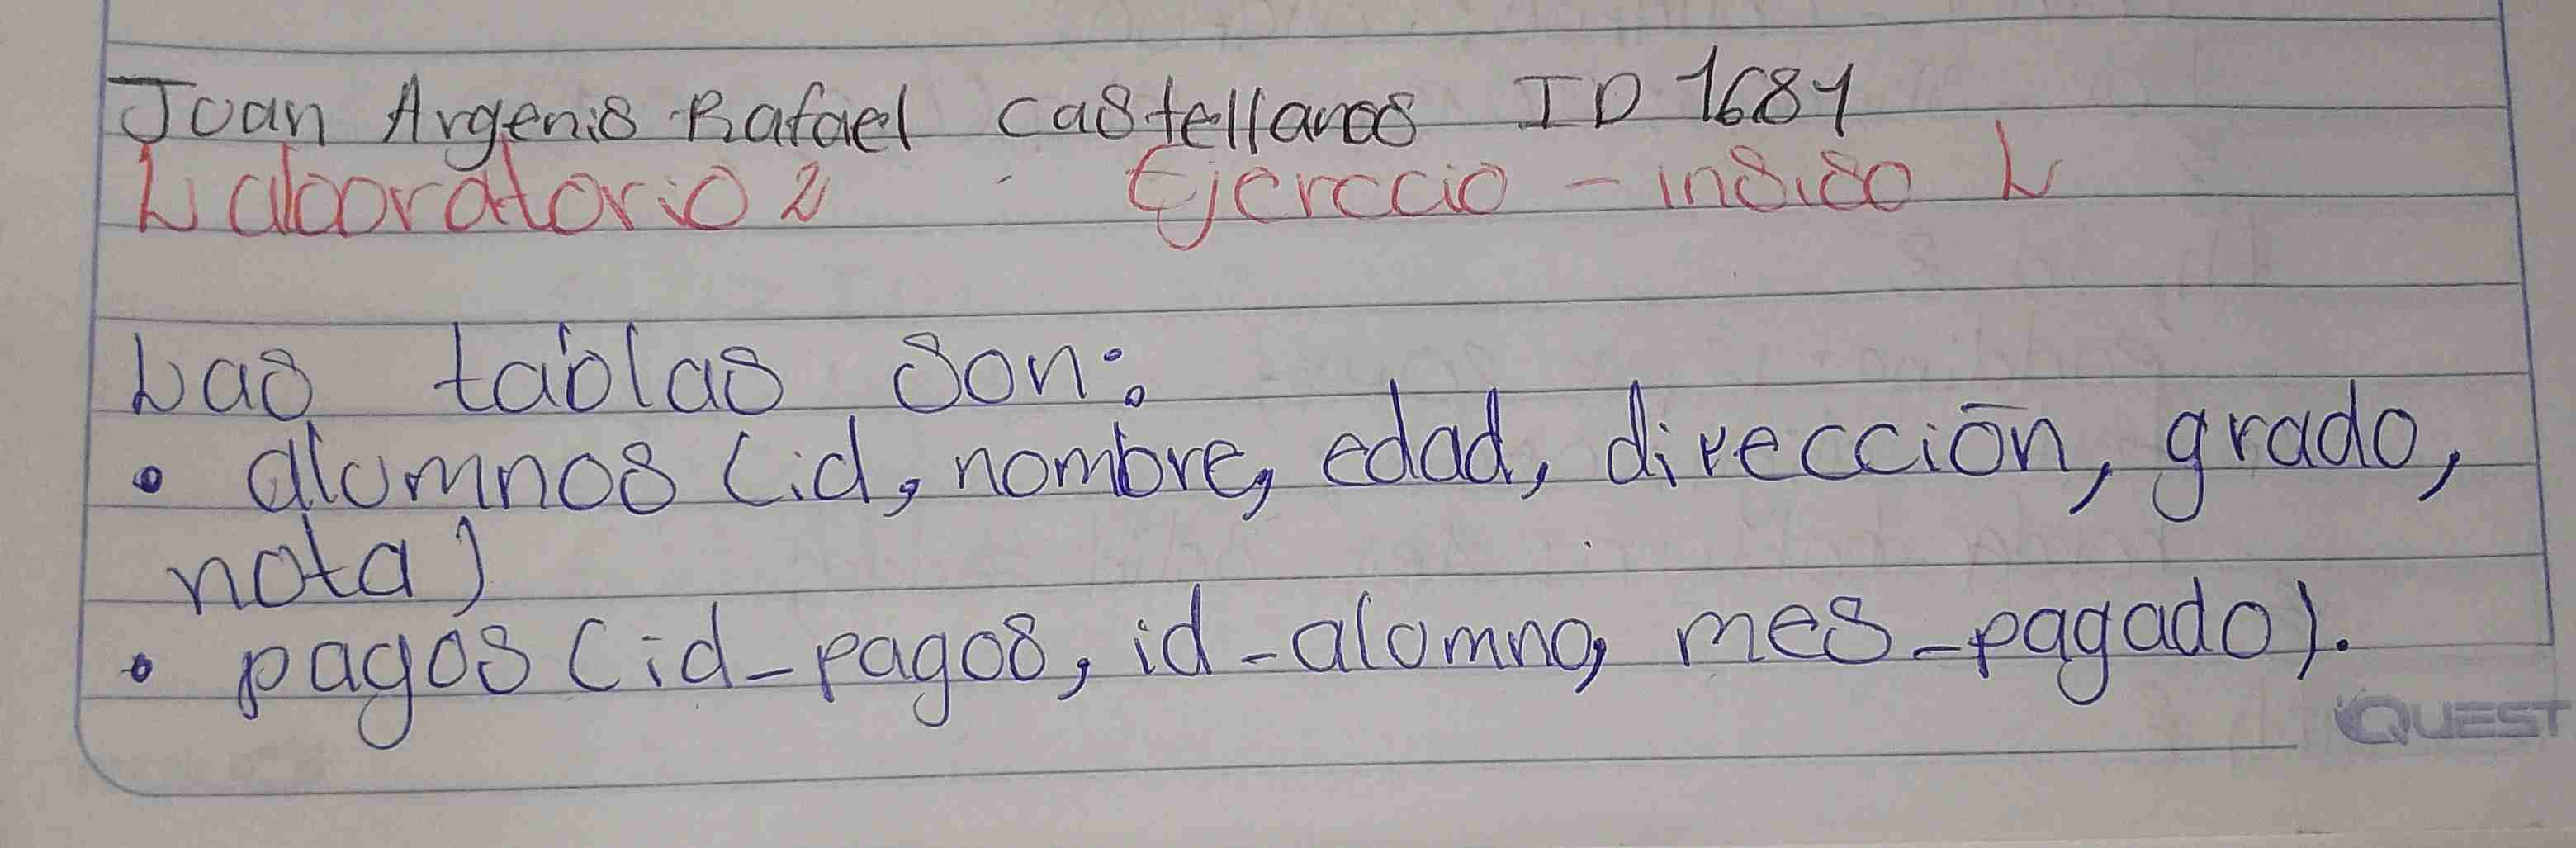 Juan Argenis Rafael Castellanos ID 1681
Laboratorio 2 Ejerccio - insiso L
Las tablas son:
• alumnos (id, nombre, edad, dirección, grado,
nota)
• pagos (id_pagos, id_alumno, mes_pagado).
QUEST